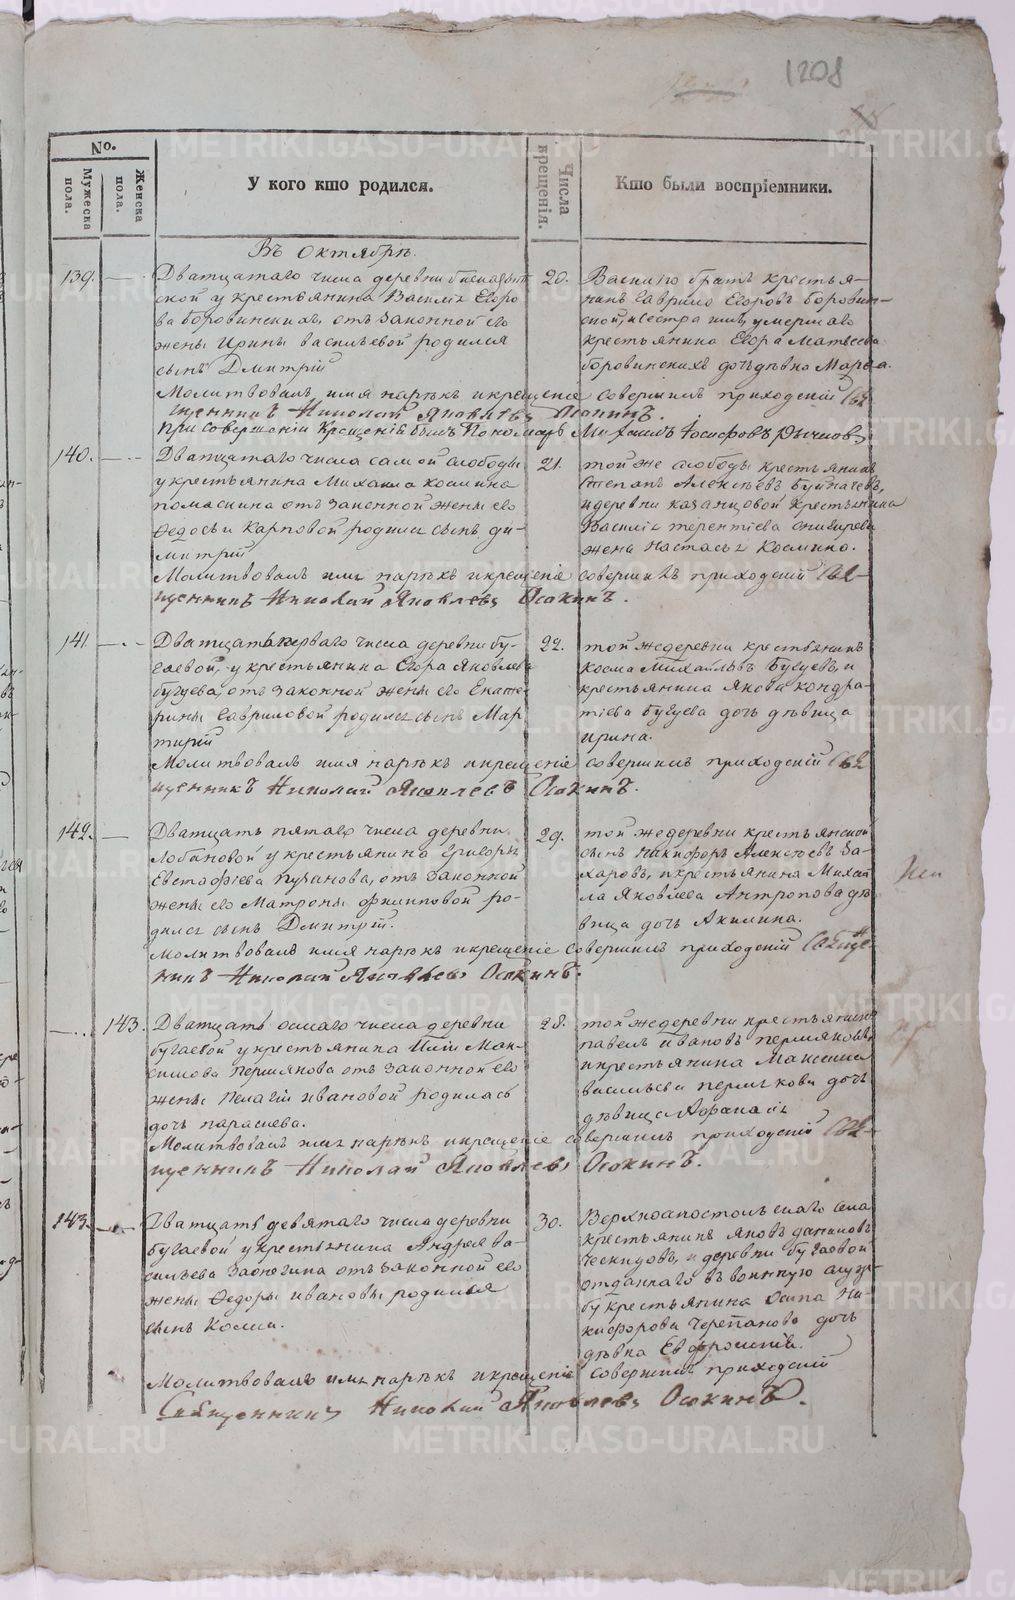 1208
№.
Мужеска пола.
Женска пола.
У кого кто родился.
Числа крещенія.
Кто были воспріемники.
Въ Октябрѣ.
139. Дватцатаго числа деревни
ской у крестьянина Василья Егоро
ва Боровинскихъ, отъ законной его
жены Ирины Васильевой родился
сынъ Дмитрій
20. Василію братъ крестья-
нинъ Гаврило Егоровъ Боровин-
ской, и сестра имъ, умершаго
крестьянина Егора Матвеева
Боровинскихъ дочь дѣвка Марѳа.
Молитвовалъ имя нарѣкъ и крещеніе совершилъ приходскій Свя
щенникъ Николай Яковлевъ Осокинъ.
При совершеніи Крещенія былъ Пономарь Михаилъ Іосифовъ Рычковъ.
140. Дватцатаго числа самой слободы
у крестьянина Михаила Космина
отъ законной жены его
Ѳедосьи Карповой родился сынъ Ди-
митрій
21. той же слободы крестьянинъ
Степанъ Алексѣевъ
и деревни Казанцовой крестьянина
Василья Терентіева Снигирева
жена Настасья Космина.
Молитвовалъ имя нарѣкъ и крещеніе совершилъ приходскій Свя-
щенникъ Николай Яковлевъ Осокинъ.
141. Дватцать перваго числа деревни Бу-
гаевой, у крестьянина Егора Яковлева
Бугуева, отъ законной жены его Екате-
рины Гавриловой родился сынъ Мар
тирій
22. той же деревни крестьянинъ
Косма Михайловъ Бугуевъ, и
крестьянина Якова Кондра-
тіева Бугуева дочь дѣвица
Ирина.
Молитвовалъ имя нарѣкъ и крещеніе совершилъ приходскій Свя
щенникъ Николай Яковлевъ Осокинъ.
142. Дватцать пятаго числа деревни
Лобановой у крестьянина Григорья
Евстафіева Пузанова, отъ законной
жены его Матроны Филиповой ро-
дился сынъ Дмитрій.
29. той же деревни крестьянской
сынъ Никифоръ Алексѣевъ За-
харовъ, и крестьянина Михай
ла Яковлева Антропова дѣ
вица дочь Акилина.
Молитвовалъ имя нарѣкъ и крещеніе совершилъ приходскій Священ-
никъ Николай Яковлевъ Осокинъ.
143. Дватцать осмаго числа деревни
Бугаевой у крестьянина Иліи Мак-
симова Пермякова отъ законной его
жены Пелагіи Ивановой родилась
дочь Параскева.
28. той же деревни крестьянинъ
Павелъ Ивановъ Пермяковъ,
и крестьянина Максима
Васильева Пермякова дочь
дѣвица Афанасія
Молитвовалъ имя нарѣкъ и крещеніе совершилъ приходскій Свя-
щенникъ Николай Яковлевъ Осокинъ.
143. Дватцать девятаго числа деревни
Бугаевой у крестьянина Андрея Ва-
сильева отъ законной его
жены Ѳедоры Ивановы родился
сынъ Косма.
30. Верхноапостольскаго села
крестьянинъ Яковъ Даниловъ
и деревни Бугаевой
отданнаго въ воинскую служ-
бу крестьянина Осипа Ни-
кифорова Черепанова дочь
дѣвка Евфросинія.
Молитвовалъ имя нарѣкъ и крещеніе совершилъ приходскій
Священникъ Николай Яковлевъ Осокинъ.